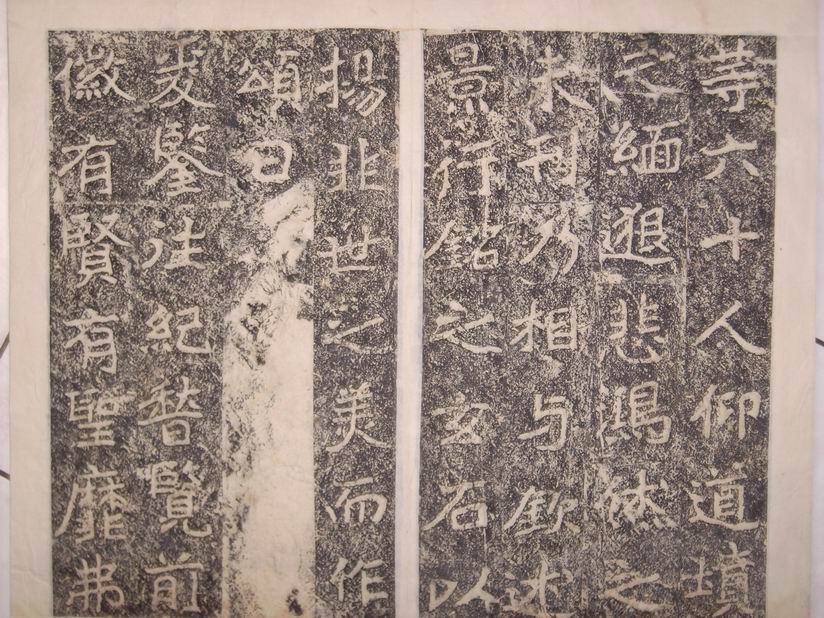 等六十人仰道墳
之緬邈悲鴻烋之
未刊乃相与欽述
景行銘之玄石以
揚非世之美而作
頌曰
爰鑒往紀覽前
徽有賢有聖靡弗